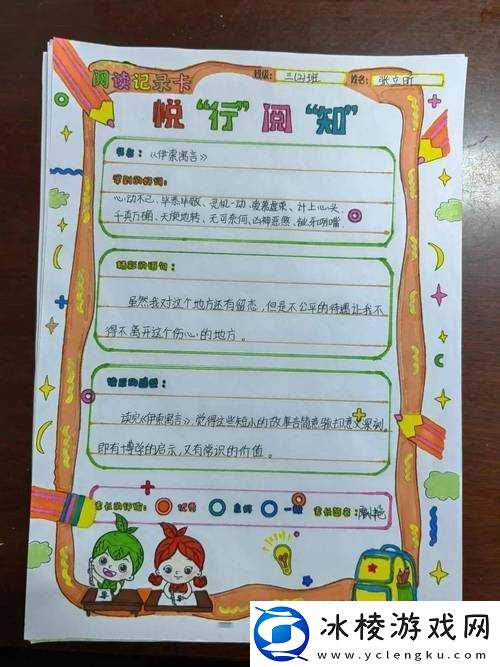 阅读记录卡
班级：三(2)班
姓名：张立昕
悦“行”阅“知”
书名：《伊索寓言》
学到的好词：
心动不已、毕恭毕敬、灵机一动、爱慕虚荣、计上心头
千真万确、天旋地转、无可奈何、凶神恶煞、龇牙咧嘴
精彩的语句：
虽然我对这个地方还有留恋，但是不公平的待遇让我不
得不离开这个伤心的地方。
读后的感想：
读完《伊索寓言》，觉得这些短小的故事言简意赅却意义深刻，
即有博学的启示，又有常识的价值。
家长的评价： 优秀 良好 一般 家长签名：
冰棱游戏网
www.yclengku.com